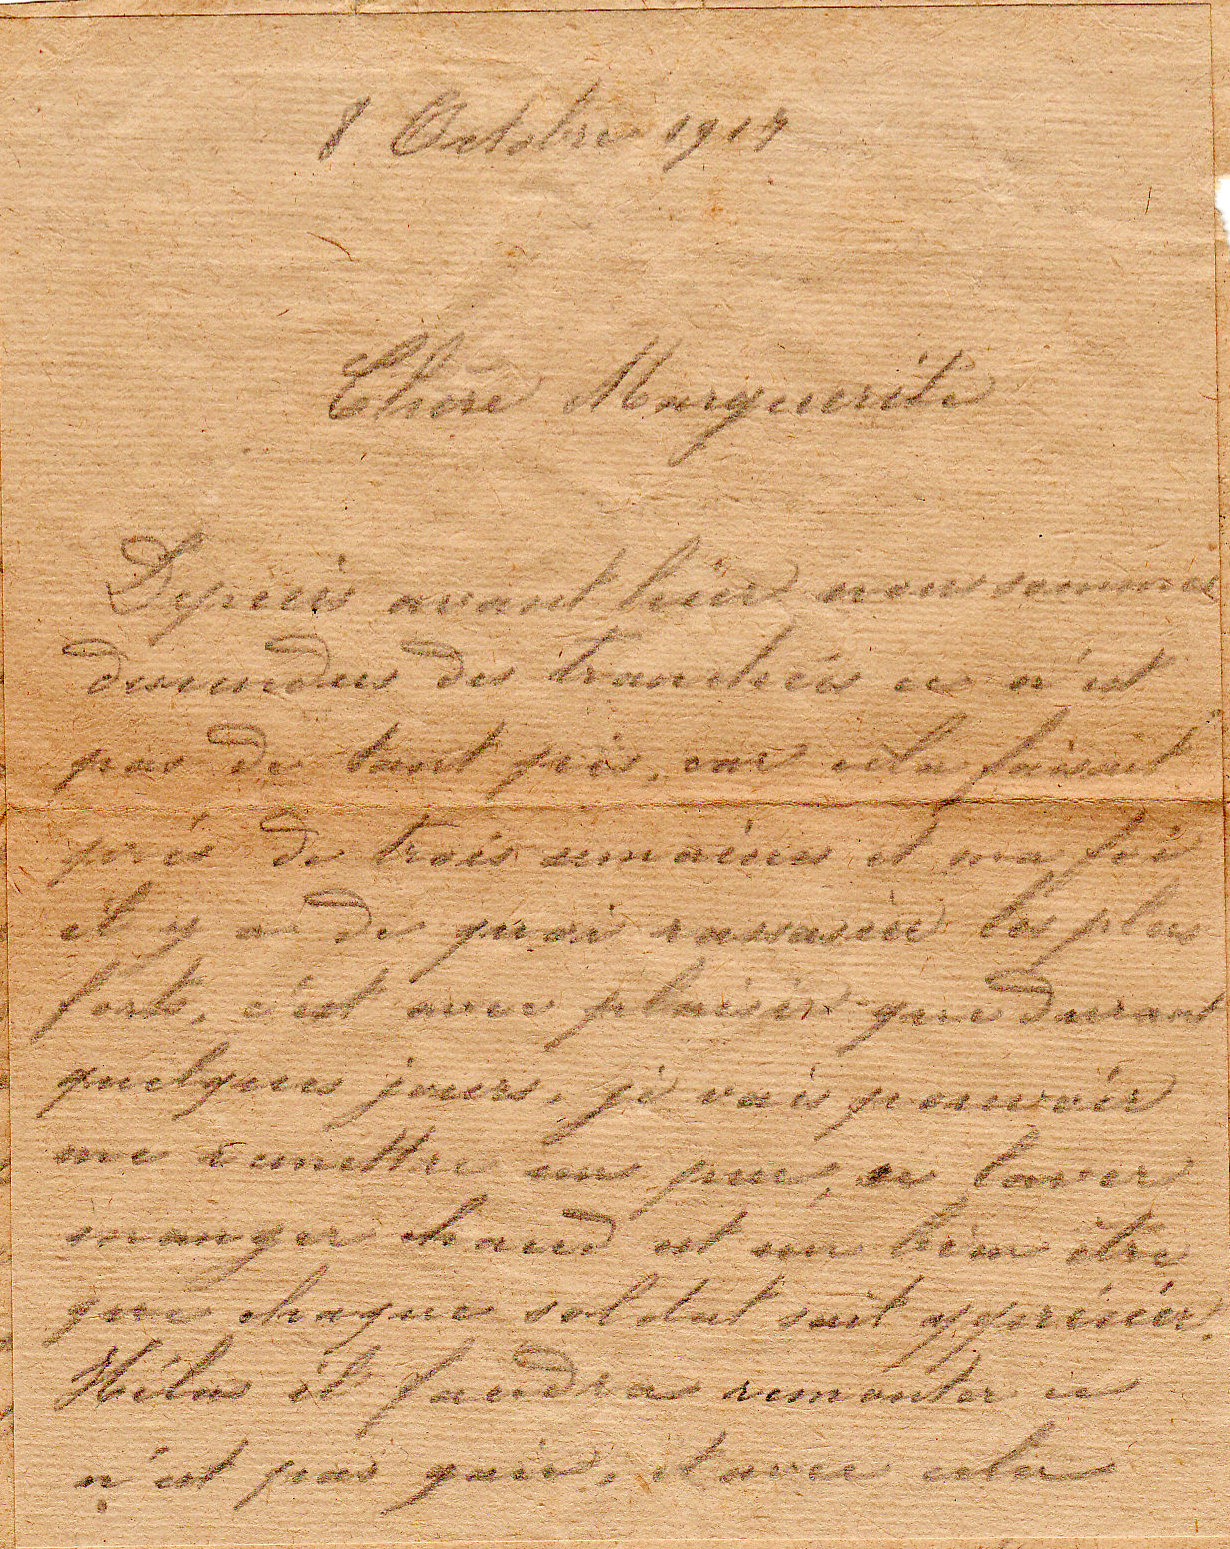 8 Octobre 1917
Chère Marguerite
Depuis avant hier nous sommes
descendus des tranchées ce n'est
pas de tant pis, car cela faisait
près de trois semaines et ma foi
il y a de quoi rassasier les plus
forts, c'est avec plaisir que durant
quelques jours, je vais pouvoir
me remettre un peu, se laver
manger chaud est un bien être
que chaque soldat sait apprécier.
Hélas il faudra remonter ce
n'est pas gaie, et avec cela